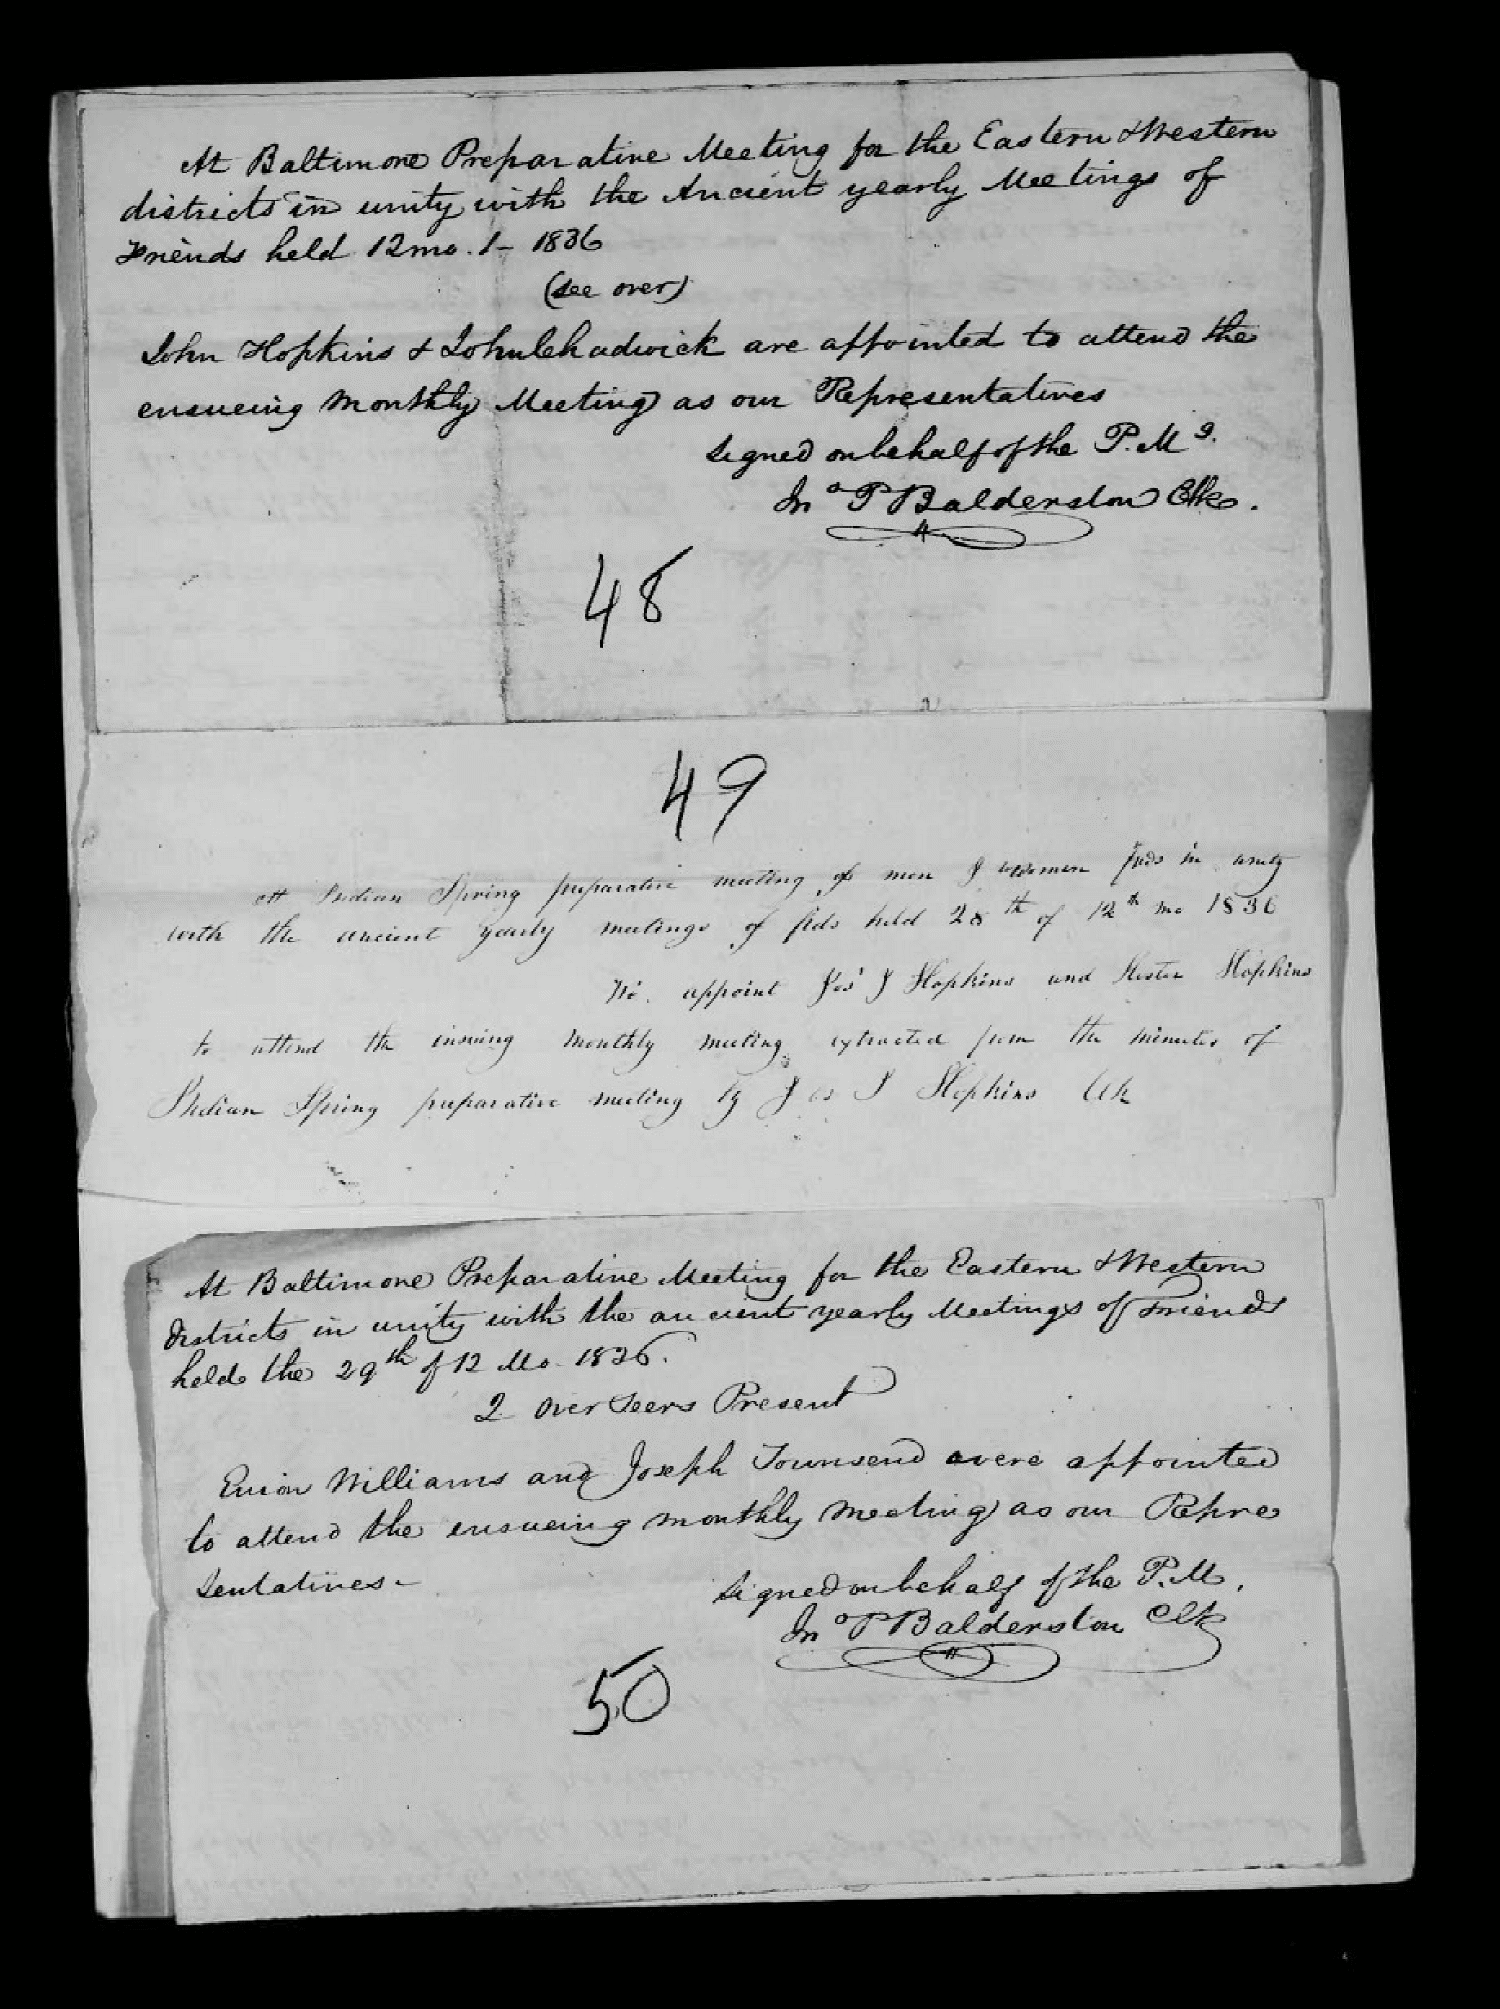 At Baltimore Preparative Meeting for the Eastern & Western
districts in unity with the Ancient yearly Meetings of
Friends held 12 mo. 1 - 1836
(see over)
John Hopkins & John Chadwick are appointed to attend the
ensueing Monthly Meeting as our Representatives
signed on behalf of the P. M g.
Jno P Balderston Clk.
48
49
At Indian Spring preparative meeting of men & women frds in unity
with the ancient yearly meetings of frds held 28th of 12th mo 1836
appoint Jos J Hopkins and Hester Hopkins
to attend the insuing monthly meeting extracted from the minutes of
Indian Spring preparative meeting by Jos J Hopkins Clk
At Baltimore Preparative Meeting for the Eastern & Western
districts in unity with the ancient yearly Meetings of Friends
held the 29th of 12 Mo. 1836.
2 Overseers Present
Enion Williams and Joseph Townsend were appointed
to attend the ensueing monthly meeting as our Repre
sentatives -
signed on behalf of the P. M.
Jno P Balderston Clk
50